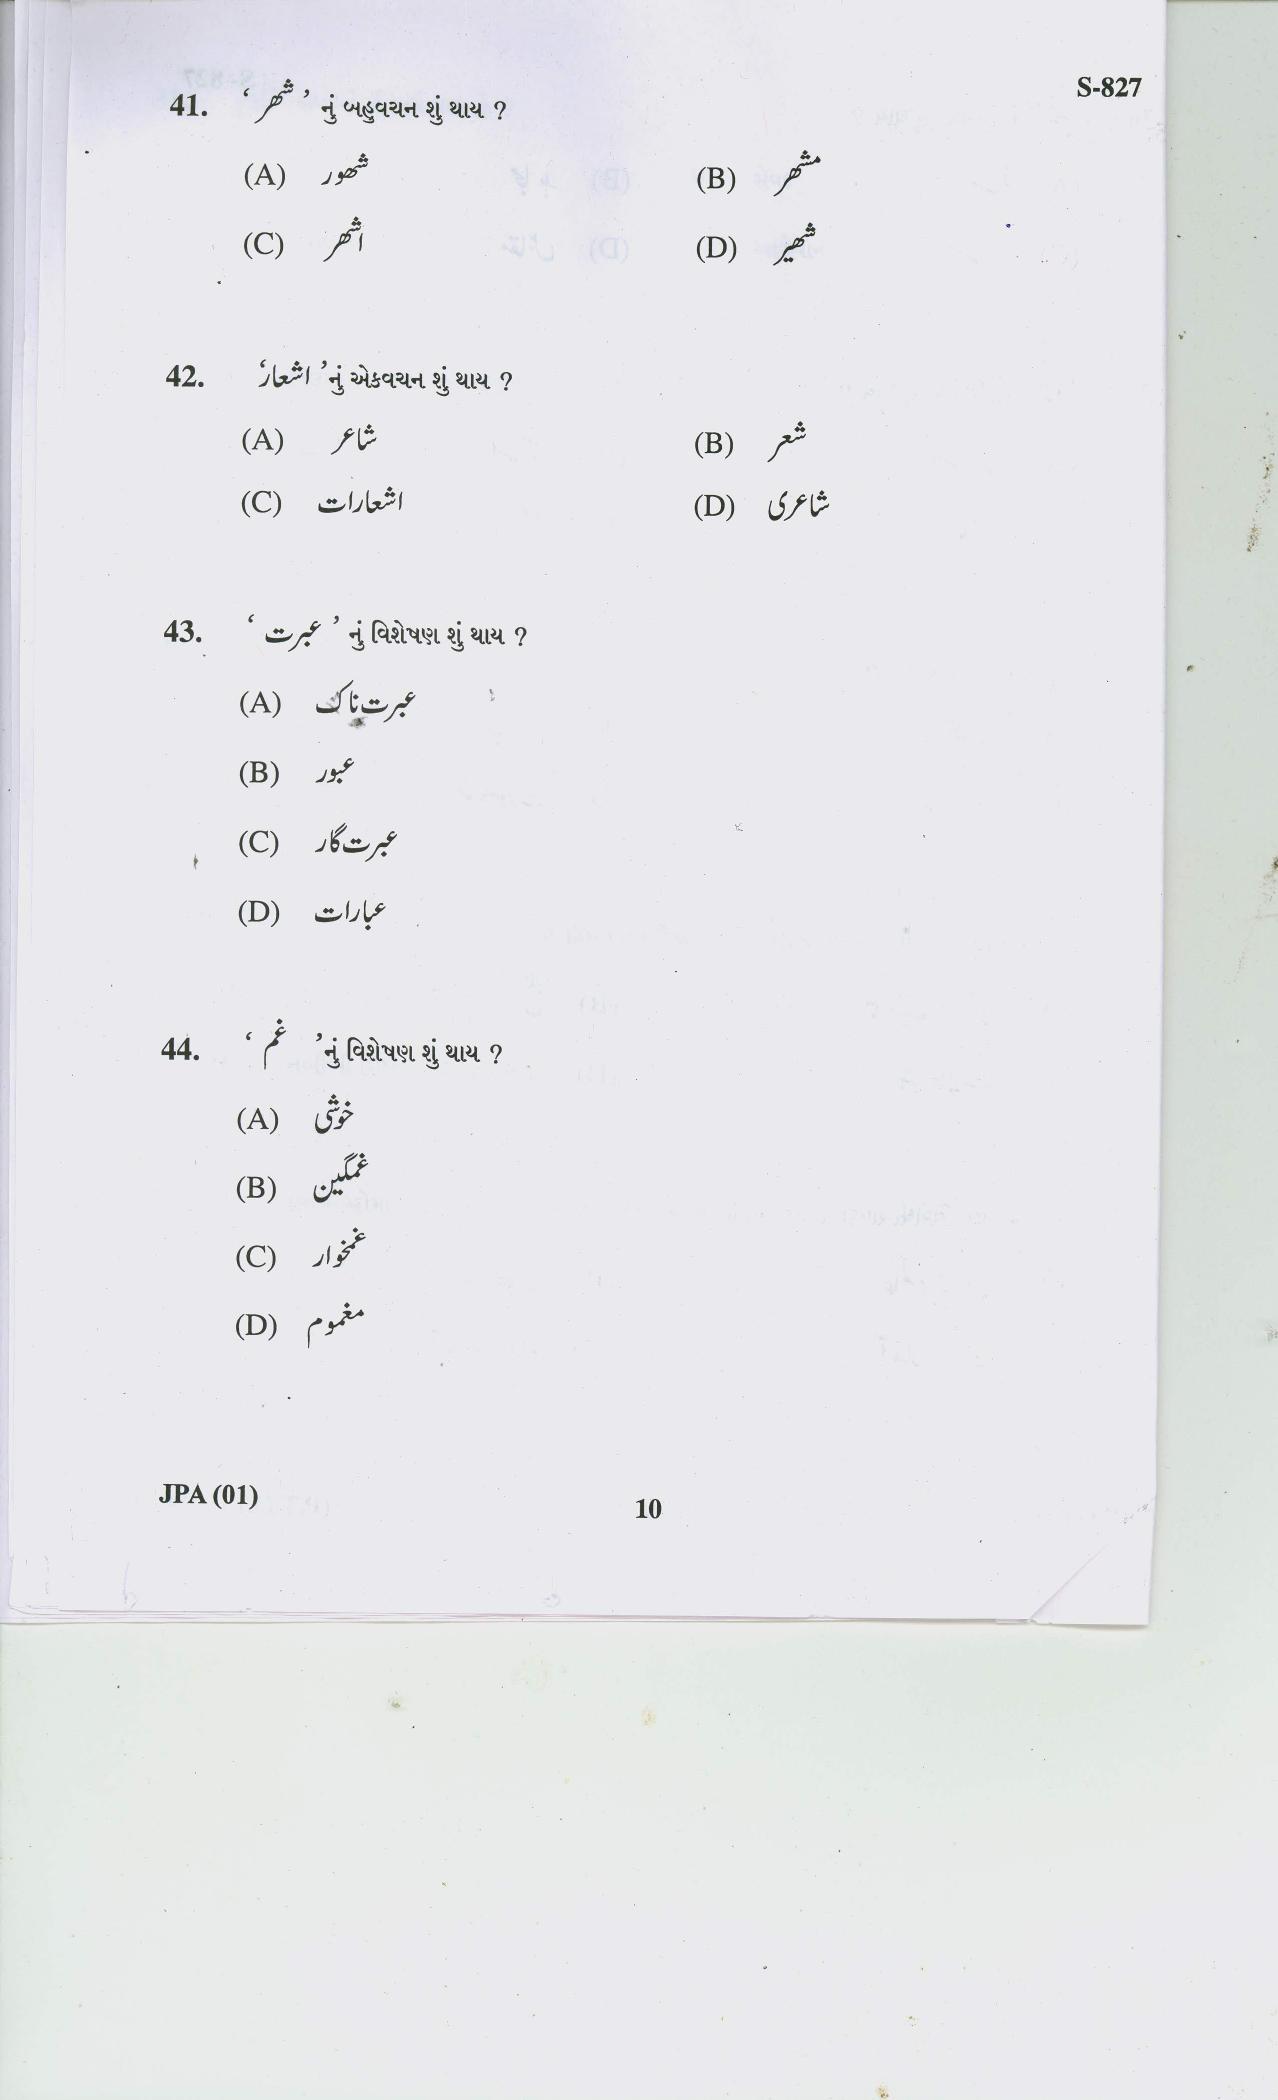 S-827
41. ‘ شهر ’ નું બહુવચન શું થાય ?
(A) شهور (B) مشهر
(C) اشهر (D) شهیر
42. ‘اشعار ’નું એકવચન શું થાય ?
(A) شاعر (B) شعر
(C) اشعارات (D) شاعری
43. ‘ عبرت ’ નું વિશેષણ શું થાય ?
(A) عبرت ناک
(B) عبور
(C) عبرت گار
(D) عبارات
44. ‘ غم ’નું વિશેષણ શું થાય ?
(A) خوشی
(B) غمگین
(C) غمخوار
(D) مغموم
JPA (01) 10